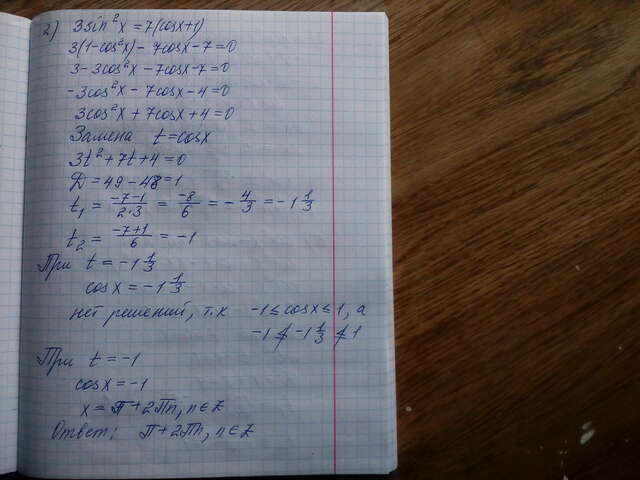 2) 3sin²x = 7(cosx+1)
3(1-cos²x) - 7cosx - 7 = 0
3 - 3cos²x - 7cosx - 7 = 0
-3cos²x - 7cosx - 4 = 0
3cos²x + 7cosx + 4 = 0
Замена t = cosx
3t² + 7t + 4 = 0
Д = 49 - 48 = 1
t₁ = (-7-1)/(2·3) = -8/6 = -4/3 = -1 1/3
t₂ = (-7+1)/6 = -1
При t = -1 1/3
cosx = -1 1/3
нет решений, т.к -1 ≤ cosx ≤ 1, а
-1 ≰ -1 1/3 ≰ 1
При t = -1
cosx = -1
x = П + 2Пn, n ∈ Z
Ответ: П + 2Пn, n ∈ Z